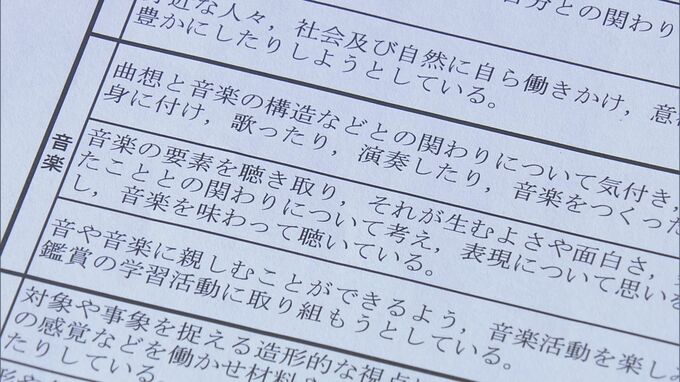 自分との関わり
身近な人々，社会及び自然に自ら働きかけ，意
豊かにしたりしようとしている。
音楽
曲想と音楽の構造などとの関わりについて気付き，
身に付け，歌ったり，演奏したり，音楽をつくった
音楽の要素を聴き取り，それが生むよさや面白さ，
たこととの関わりについて考え，表現について思い
し，音楽を味わって聴いている。
音や音楽に親しむことができるよう，音楽活動を楽し
鑑賞の学習活動に取り組もうとしている。
対象や事象を捉える造形的な視点
の感覚などを働かせ材料
たりしている。